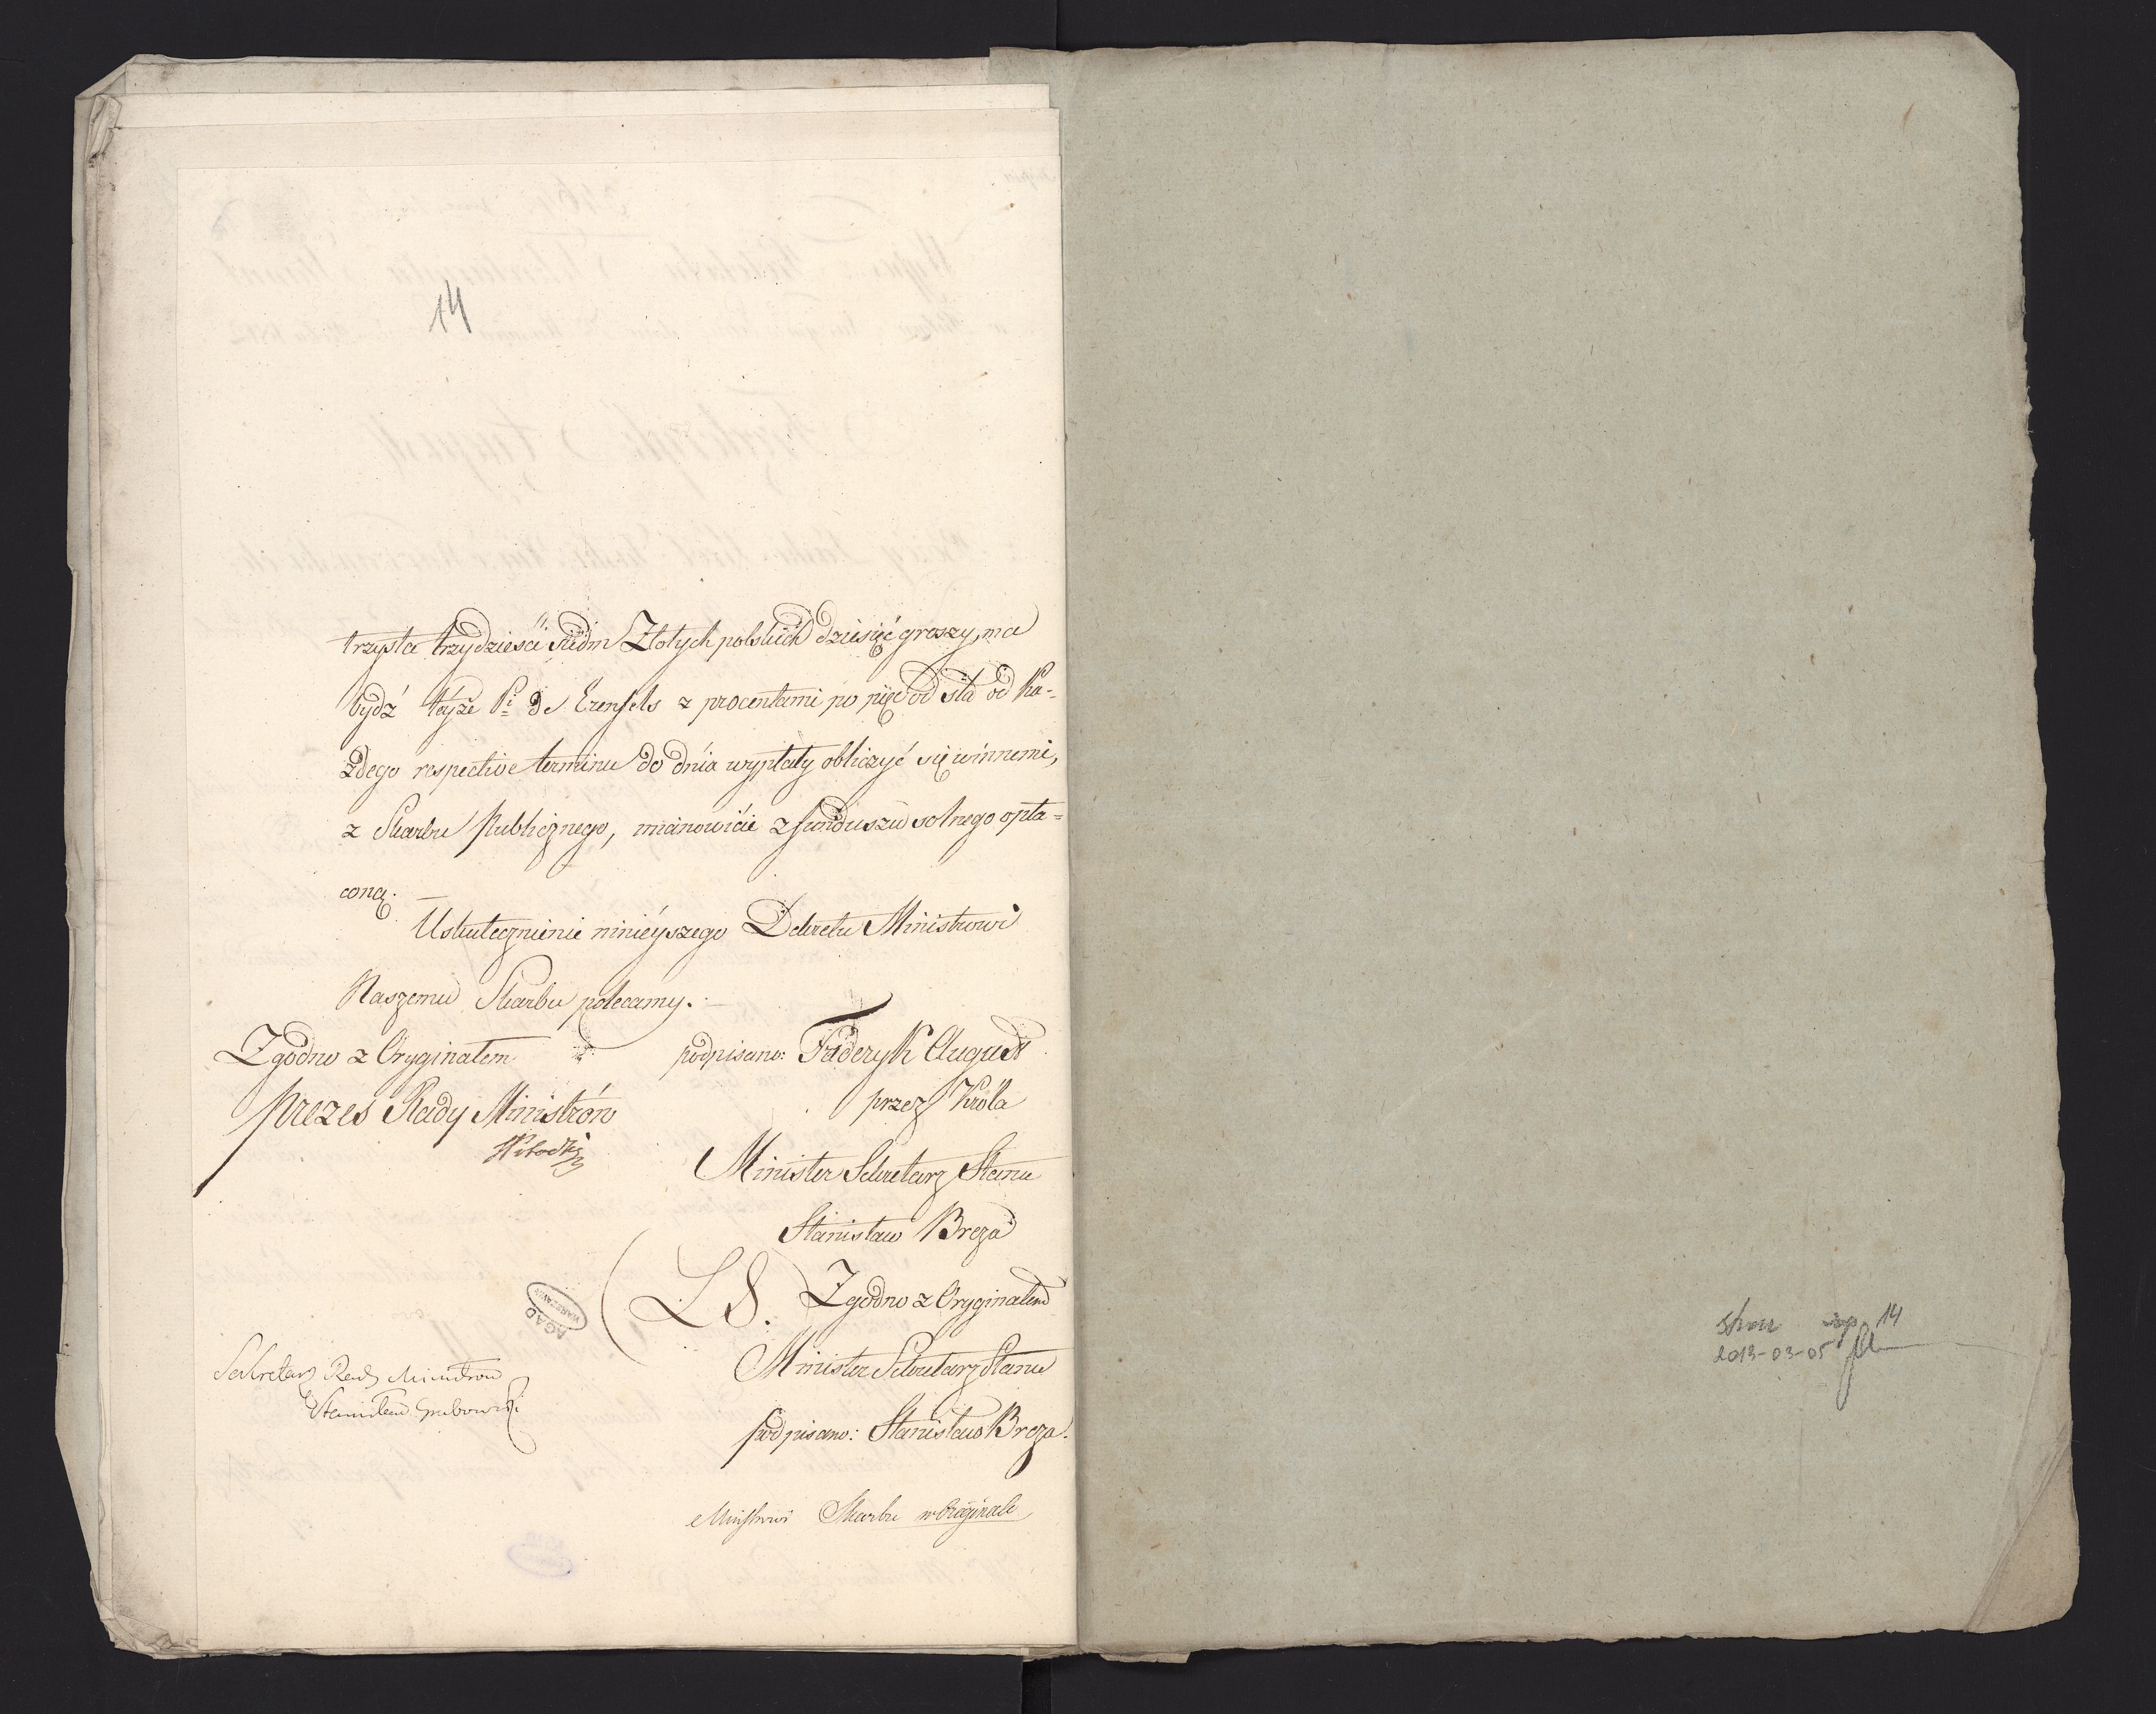 14
trzysta trzydzieści siedm Złotych polskich dziesięć groszy, ma
bydź teyże Pi de Erenfels z procentami po pięć od sta od ka-
żdego respective terminu do dnia wypłaty obliczyć się winnemi,
z Skarbu Publicznego, mianowicie z funduszu solnego opła=
coną. —
Uskutecznienie ninieyszego Dekretu Ministrowi
Naszemu Skarbu polecamy. —
Zgodno z Oryginałem
Prezes Rady Ministrów
podpisano: Fryderyk August
przez Króla
Minister Sekretarz Stanu
Stanisław Breza
(L S.) Zgodno z Oryginałem
Minister Sekretarz Stanu
podpisano: Stanisław Breza.
AGAD
WARSZAWA
Sekretarz Rady Ministrow
Stanisław Grabowski
Ministrowi Skarbu w Oryginale
stron 14
2013-03-05